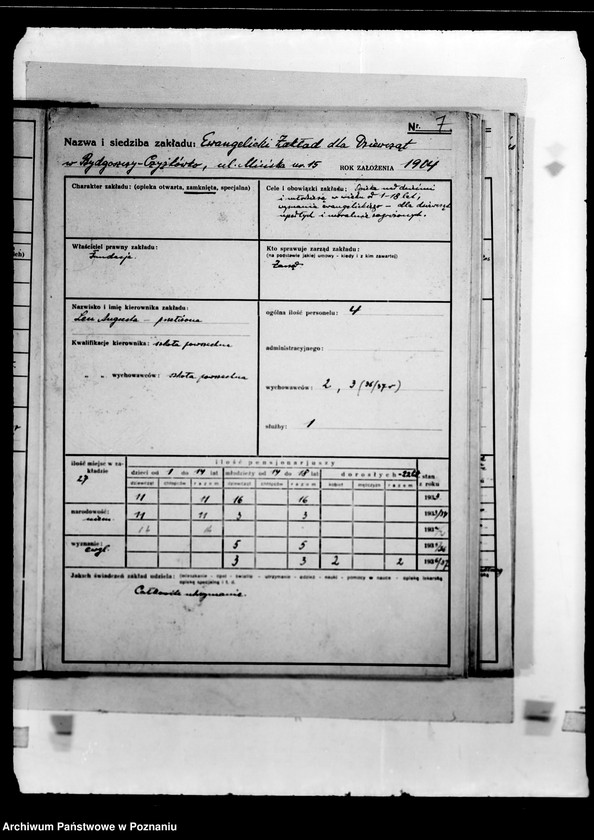 Nr. 7
Nazwa i siedziba zakładu: Ewangelicki Zakład dla Dziewcząt
w Bydgoszczy-Czyżkówko, ul. Mińska nr. 15 ROK ZAŁOŻENIA 1904
Charakter zakładu: (opieka otwarta, zamknięta, specjalna)
Cele i obowiązki zakładu: Opieka nad dziećmi
i młodzieżą w wieku od 1-18 lat,
wyznania ewangelickiego - dla dziewcząt
upadłych i moralnie zagrożonych.
Właściciel prawny zakładu:
Fundacja.
Kto sprawuje zarząd zakładu:
(na podstawie jakiej umowy - kiedy i z kim zawartej)
Zarząd
Nazwisko i imię kierownika zakładu:
Augusta -
Kwalifikacje kierownika: szkoła powszechna
„ „ wychowawców: szkoła powszechna
ogólna ilość personelu: 4
administracyjnego:
wychowawców: 2, 3 (36/37 r)
służby: 1
ilość miejsc w zakładzie
27
ilość pensjonarjuszy
dzieci od 1 do 14 lat młodzieży od 14 do 18 lat dorosłych stan z roku
dziewcząt chłopców razem dziewcząt chłopców razem kobiet mężczyzn razem
11 11 16 16 193
narodowość: 11 11 3 3 193
niem.
wyznanie: 5 5 193
ewgl. 3 3 2 2 1936/37
Jakich świadczeń zakład udziela: (mieszkanie - opał - światło - utrzymanie - odzież - nauki - pomocy w nauce - opieką lekarską
opieką specjalną i t. d.
Całkowite utrzymanie.
Archiwum Państwowe w Poznaniu